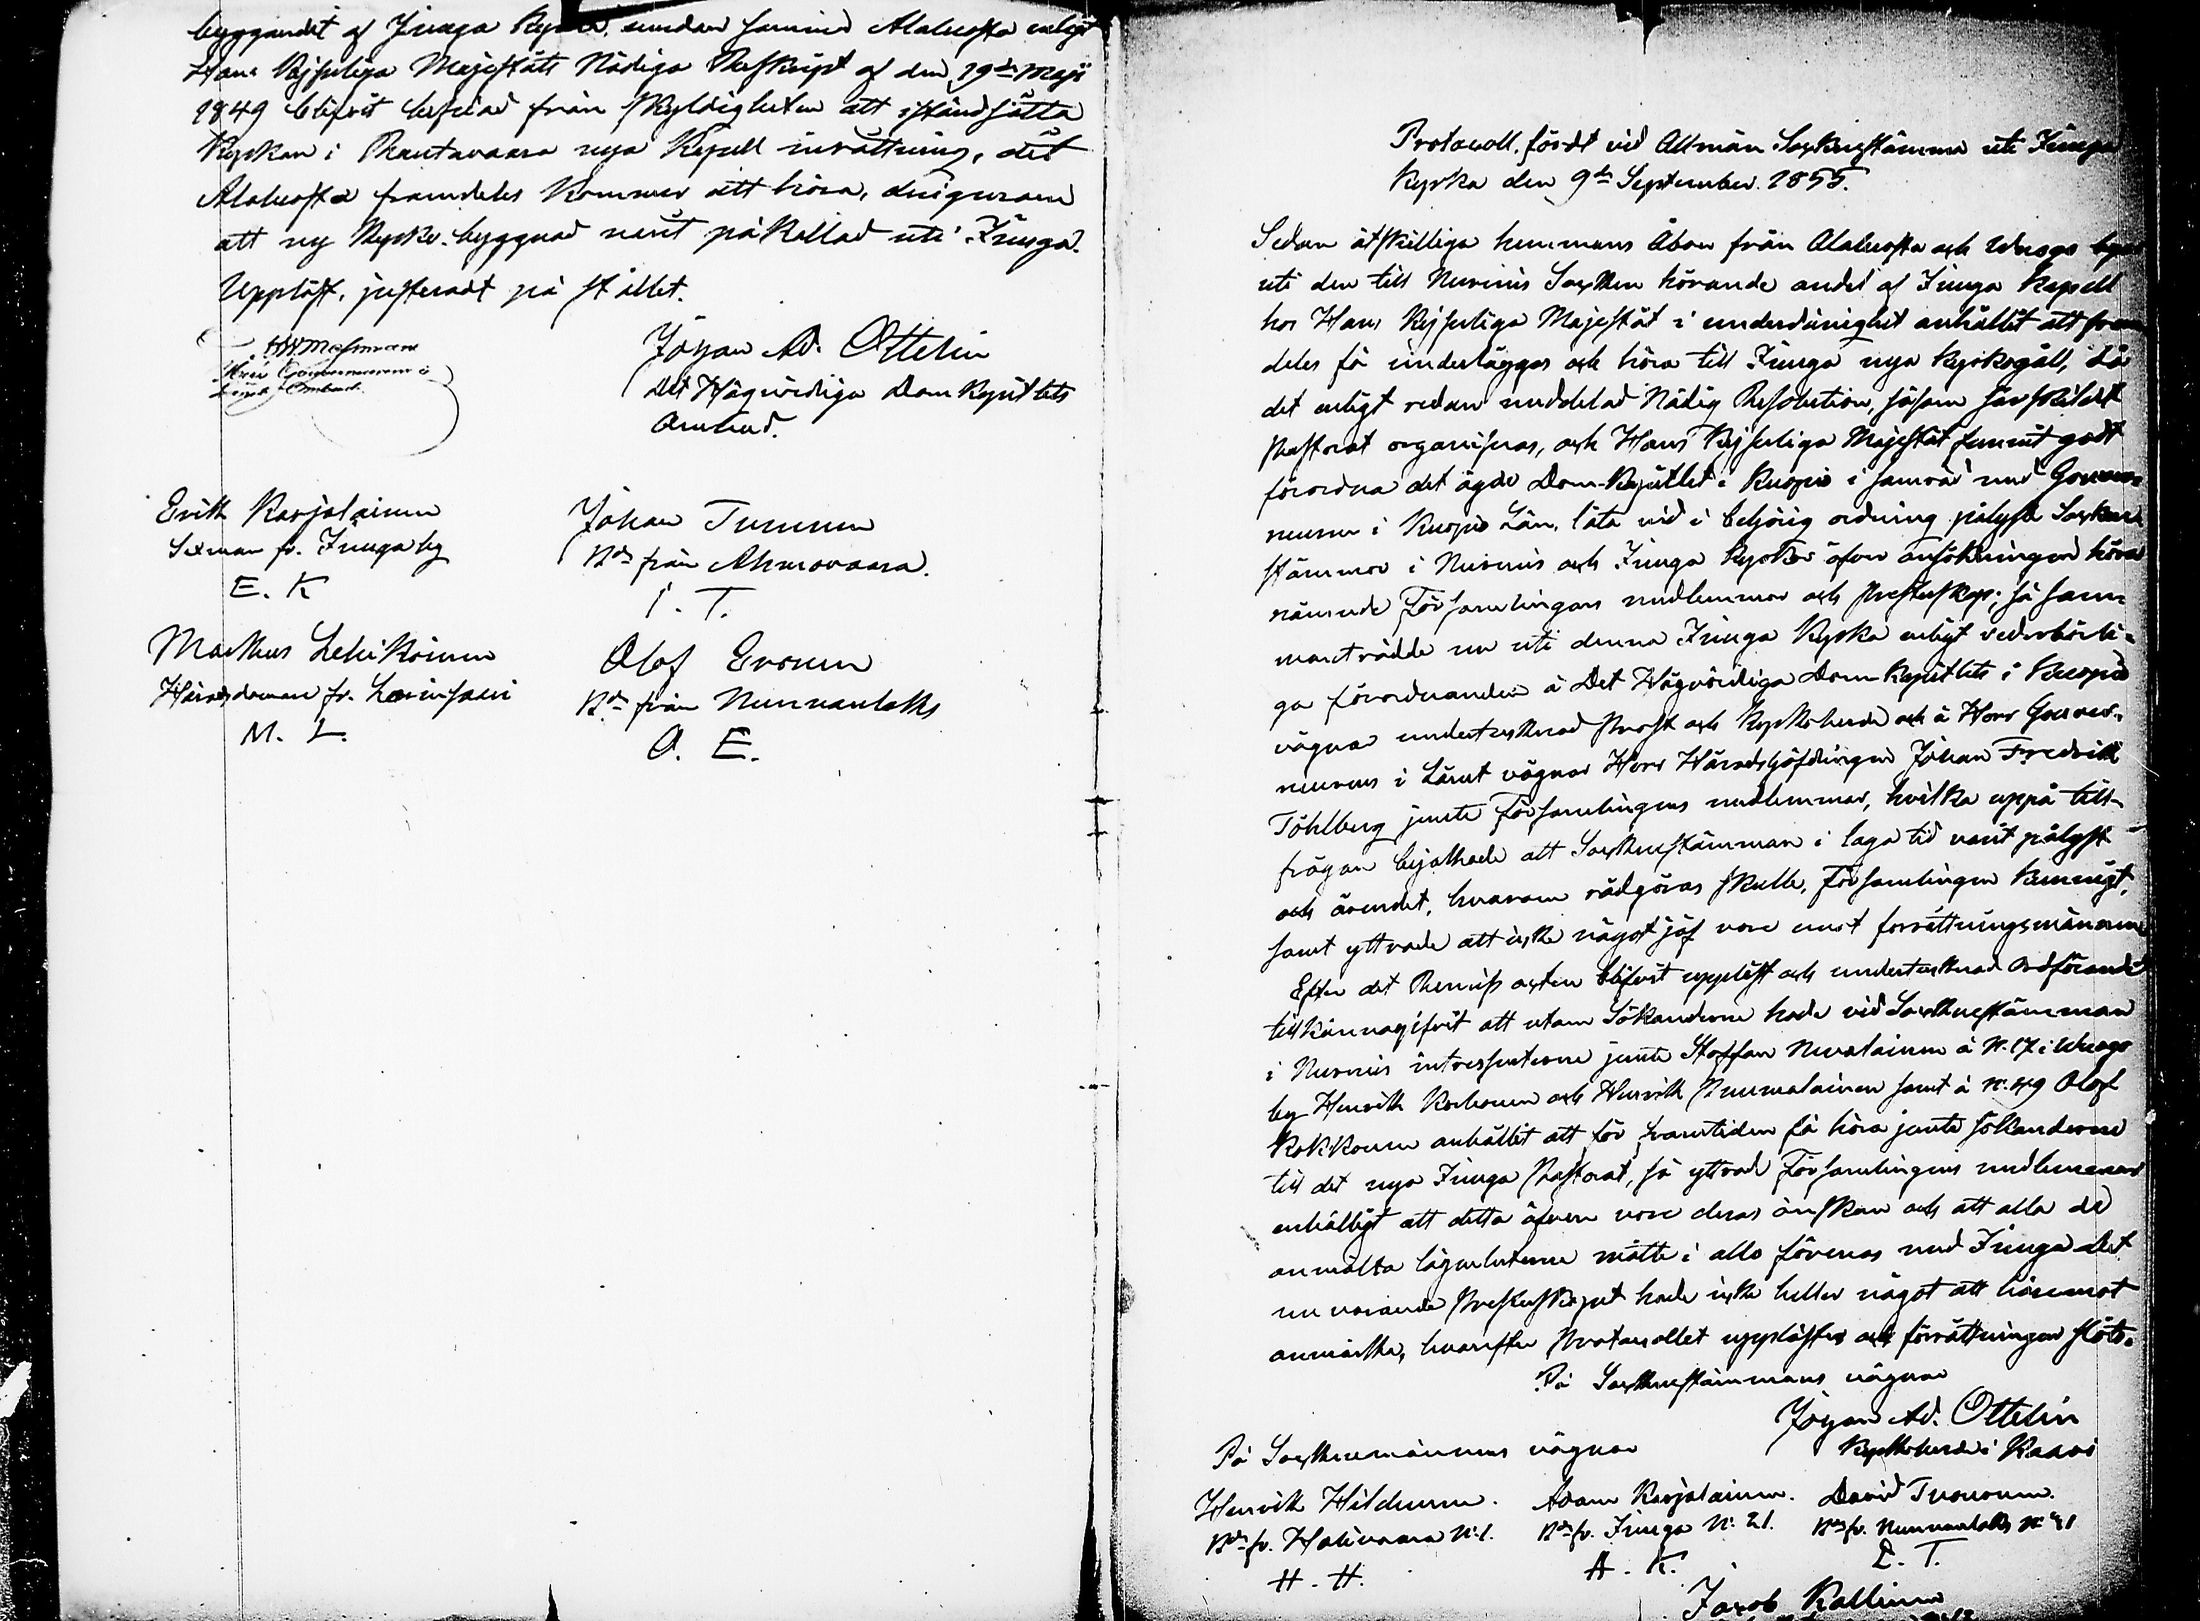 byggandet af Juuga Kyrka, sendan samma Alaluosta enligt
Hans Kejserliga Majestäts Nådiga Reskript af den 19de Maji
1849 blifvit befriad från skyldigheten att iståndsätta
Kyrkan i Rautavaara nya Kapell inrättning, dit
Alaluosta framdeles kommer att höra,
att ny Kyrko-byggnad varit påkallad uti Juuga.
Uppläst, justeradt på stället.
Johan Ad. Ottelin
Det Högvördiga Dom Kapitlets
Ombud.
Erik Karjalainen
Sexman fr. Juuga by
E. K
Johan Turunen
Bde från Ahmovaara.
I. T.
Markus Leskikoinen
Häradsdomare fr.
M. L.
Olof Eronen
Bde från Nunnanlaks
O. E.
Protocoll, fördt vid Allmän Sockenstämma uti Juuga
Kyrka den 9de September 1855.
Sedan åtskilliga hemmans Åboer från Alaluosta och byar
uti den till Nurmis Socken hörande andel af Juuga Kapell
hos Hans Kejserliga Majestät i underdånighet anhållit att fram
deles få underläggas och höra till Juuga nya Kyrkogäll, då
det enligt redan meddelad Nådig Resolution, såsom särskildt
Pastorat organiseras, och Hans Kejserliga Majestät funnit godt
förordna det ägde Dom-Kapitlet i Kuopio i samråd med Gouver-
neuren i Kuopio Län, låta vid i behörig ordning pålyste Socken
stämmor i Nurmis och Juuga Kyrkor öfver ansökningen höra
nämnde Församlingars medlemmar och Presterskap; så sam-
manträdde nu uti denna Juuga Kyrka enligt vederbörli-
ga förordnanden å Det Högvördiga Dom-Kapitlets i Kuopio
vägnar undertecknad Prost och Kyrkoherde och å Herr Gouver-
neurens i Länet vägnar Herr Häradshöfdingen Johan Fredrik
Töhlberg jemte Församlingens medlemmar, hvilka uppå till-
frågan bejakade att Sockenstämman i laga tid varit pålyst
och ärendet, hvarom rådgöras skulle, Församlingen kunnigt,
samt yttrade att icke något jäf vore emot förrättningsmännen
Efter det Remiss acten blifvit uppläst och undertecknad Ordförande
tillkännagifvit att utom Sökanderne hade vid Sockenstämman
i Nurmis intressenterne jemte Staffan Nevalainen å N. 17 i
by Henrik Korhonen och Henrik samt å N. 49 Olof
Kokkonen anhållit att för framtiden få höra jemte sökanderne
till det nya Juuga Pastorat, så yttrade Församlingens medlemmar
enhälligt att detta äfven vore deras önskan och att alla de
anmälta lägenheterne måtte i allo förenas med Juuga Det
nu varande Presterskapet hade icke heller något att häremot
anmärka, hvarefter Protocollet upplästes och förrättningen slöts.
På Sockenstämmans vägnar
Johan Ad. Ottelin
Kyrkoherde i Kaavi
På Sockenmännens vägnar
Henrik Hildunen.
Bde fr. Halivaara N:1.
H. H.
Adam Karjalainen.
Bde fr. Juuga N: 21.
A. K.
David Turunen.
Bde fr. Nunnanlaks N: 21
D. T.
Jacob Kallinen